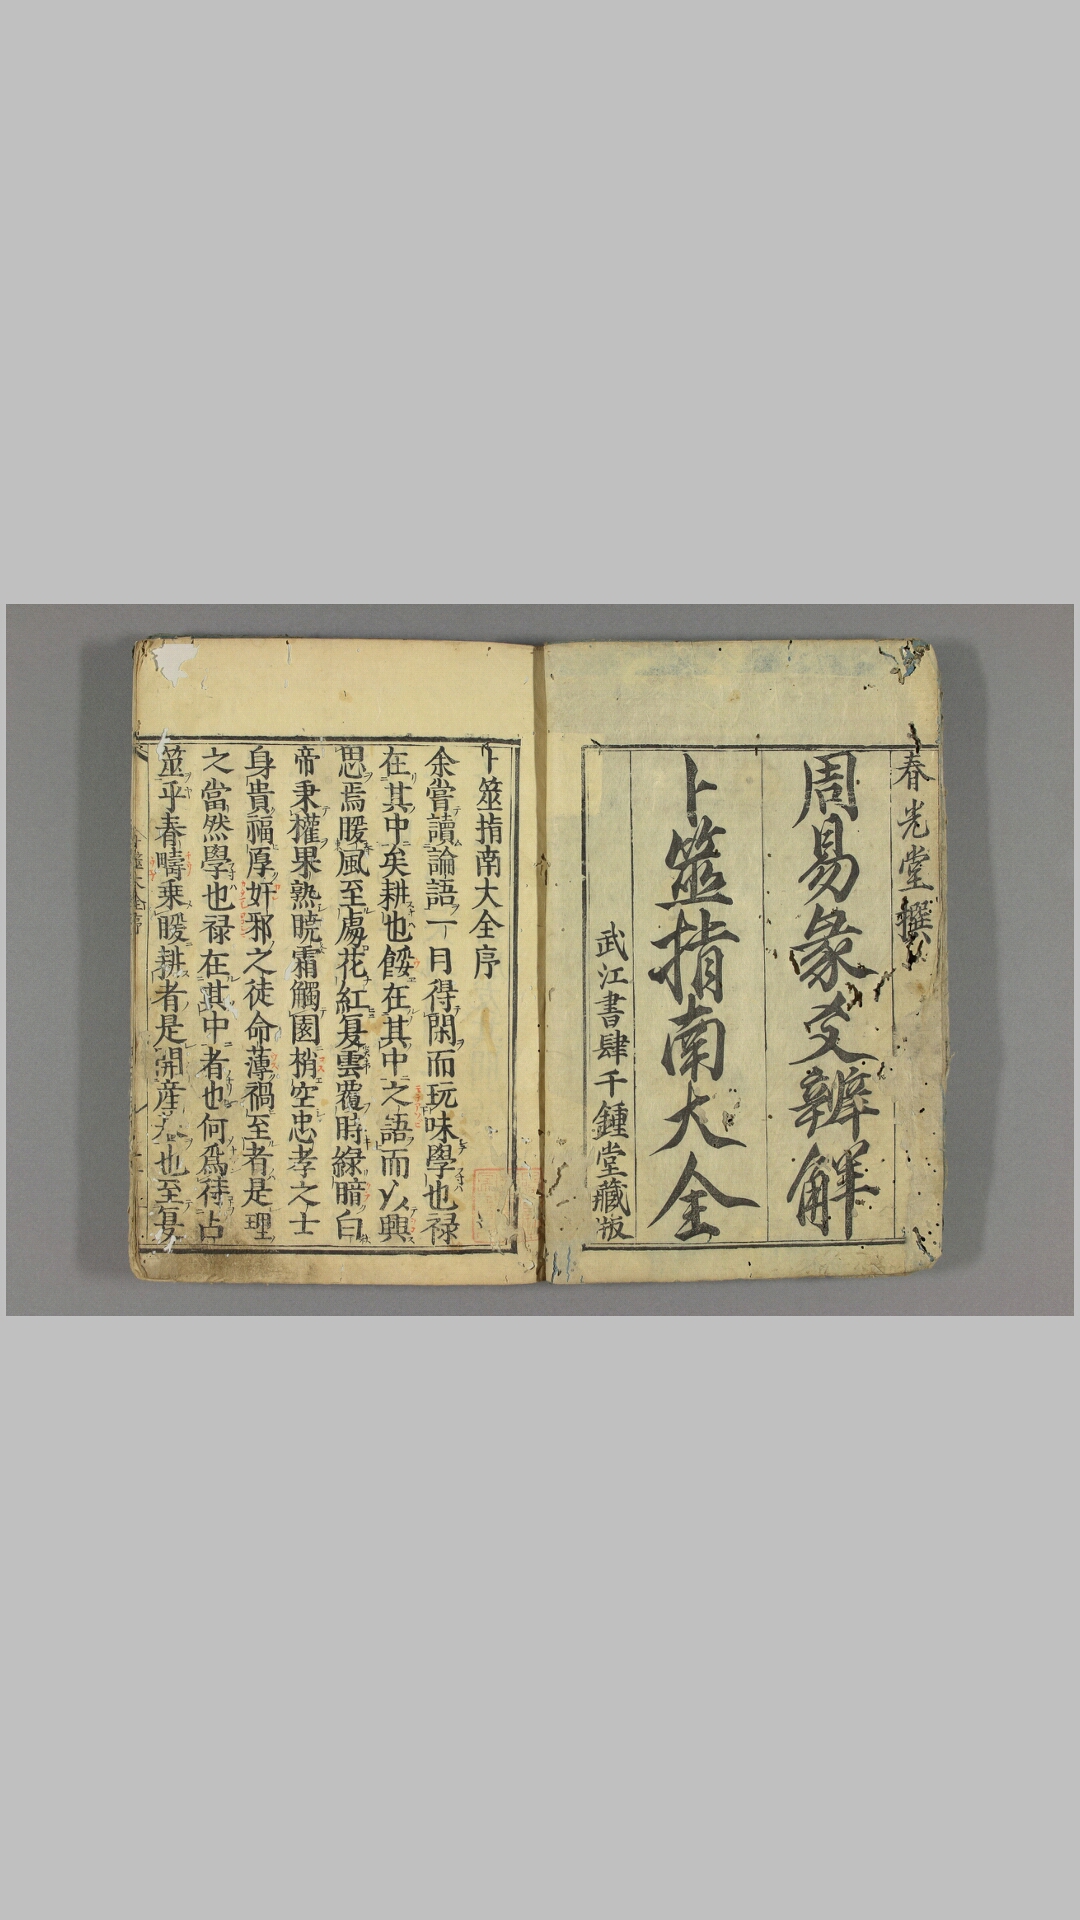 春光堂撰
周易彖爻辨解
卜筮指南大全
武江書肆千鍾堂藏版
卜筮指南大全序
余嘗讀論語一日得閑而玩味學也禄
在其中矣耕也餒在其中之語而以興
思焉暖風至處花紅夏雲覆時綠暗白
帝秉權果熟曉霜觸園梢空忠孝之士
身貴福厚奸邪之徒命薄禍至者是理
之當然學也禄在其中者也何爲待占
筮乎春疇乗暖耕者是開産 也至夏